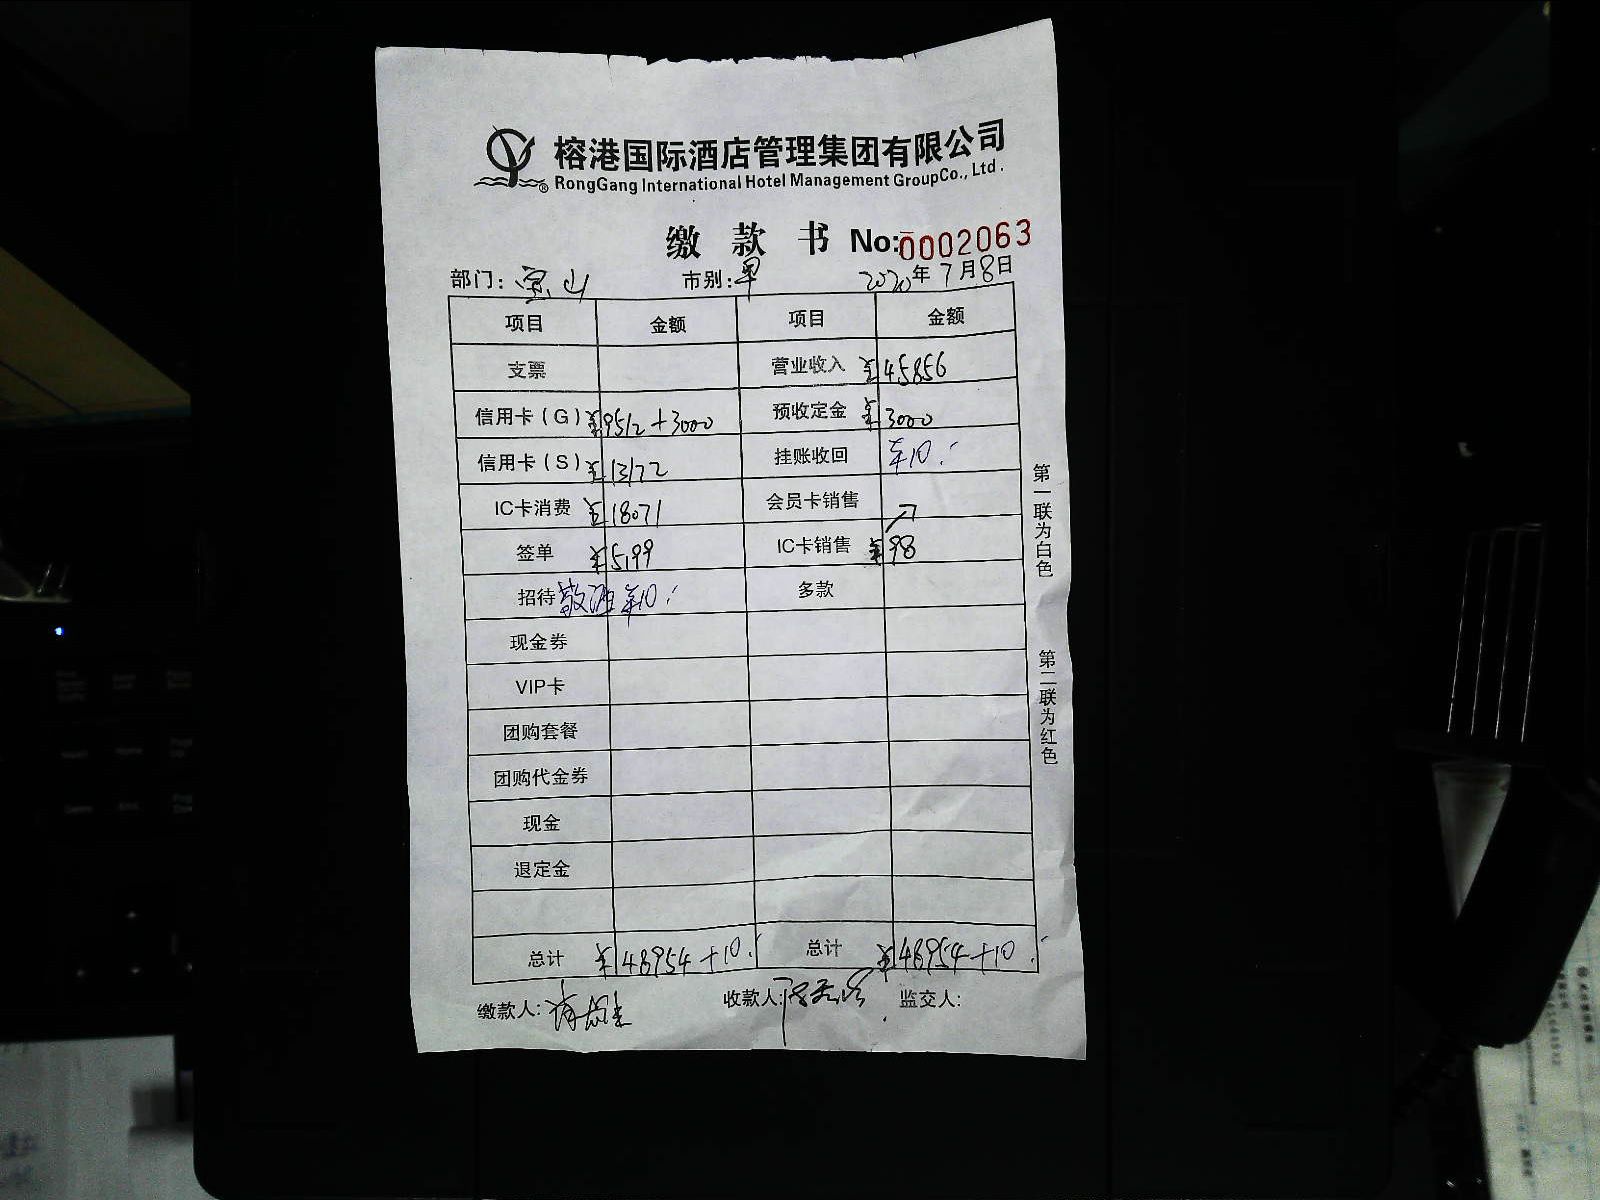 榕港国际酒店管理集团有限公司
RongGang International Hotel Management GroupCo., Ltd.
缴款书 No:0002063
部门: 宝山 市别: 早 2020年7月8日
项目 金额 项目 金额
支票 营业收入 ¥45856
信用卡(G) ¥9512+3000 预收定金 ¥3000
信用卡(S) ¥13172 挂账收回 ¥10.
IC卡消费 ¥18071 会员卡销售
签单 ¥5199 IC卡销售 ¥98
招待 ¥10. 多款
现金券
VIP卡
团购套餐
团购代金券
现金
退定金
总计 ¥48954+10. 总计 ¥48954+10.
缴款人: 收款人: 监交人:
第一联为白色
第二联为红色